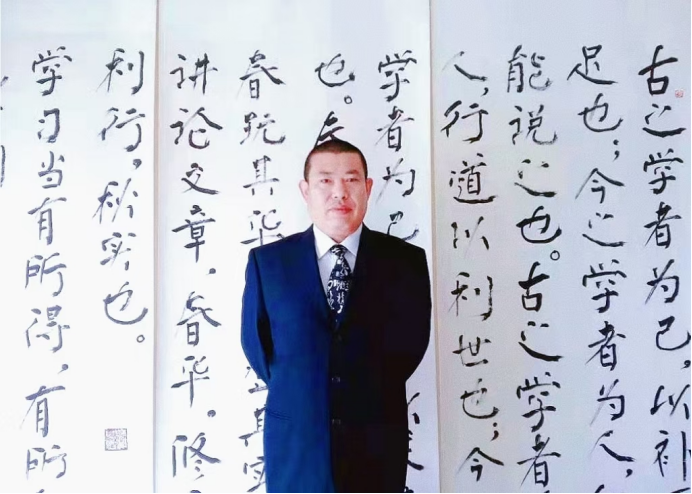 古之学者为己，以补
足也；今之学者为人，
能说之也。古之学者
人，行道以利世也；今
学者为己
也。夫
春玩其华 其实
讲论文章，春华。修
利行，秋实也。
学习当有所得，有所